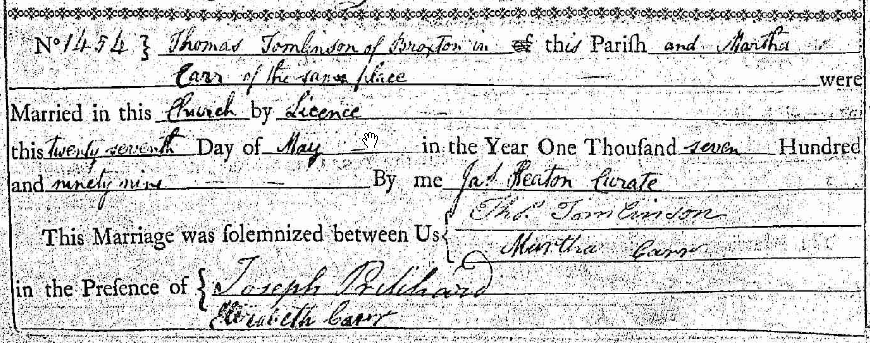 No 1454 } Thomas Tomlinson of Broxton in of this Parish and Martha
Carr of the same place — were
Married in this Church by Licence
this twenty seventh Day of May — in the Year One Thousand seven Hundred
and ninety nine — — By me Jas Keaton Curate
This Marriage was solemnized between Us { Thos. Tomlinson
Martha Carr
in the Presence of { Joseph Pritchard
Elizabeth Carr